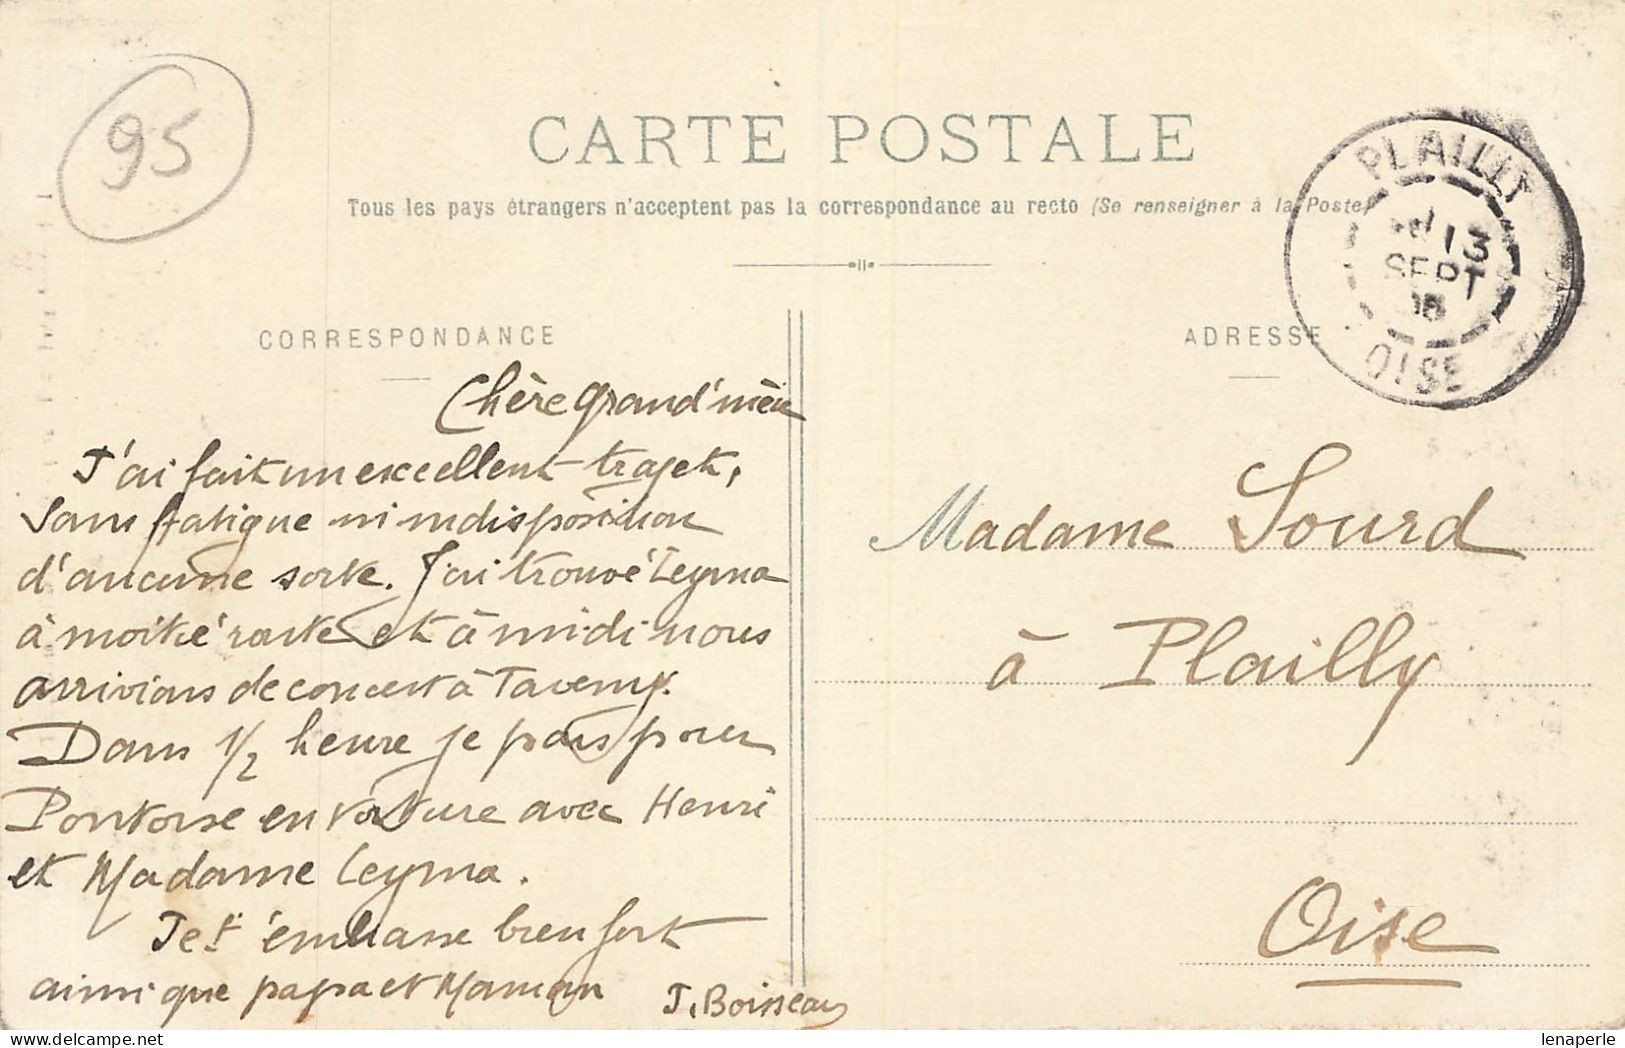 95
CARTE POSTALE
Tous les pays étrangers n'acceptent pas la correspondance au recto (Se renseigner à la Poste)
PLAILLY
13
SEPT
08
OISE
CORRESPONDANCE
ADRESSE
Chère Grand'mère
J'ai fait un excellent trajet,
Sans fatigue ni indisposition
d'aucune sorte. J'ai trouvé Leyma
à moitié route et à midi nous
arrivions de concert à Taverny.
Dans 1/2 heure je pars pour
Pontoise en voiture avec Henri
et Madame Leyma.
Je t'embrasse bien fort
ainsi que papa et Maman
J. Boisseau
Madame Sourd
à Plailly
Oise
lenaperle